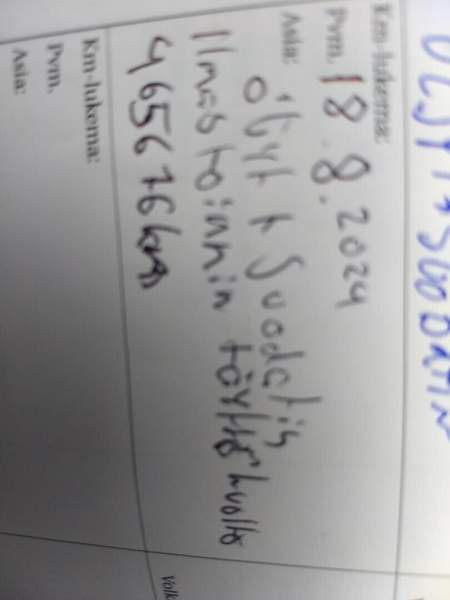 Km-lukema:
Pvm. 18.8.2024
Asia:
öljyt + Suodatin
Ilmastoinnin täyttö huolto
465676km
Km-lukema:
Pvm.
Asia: